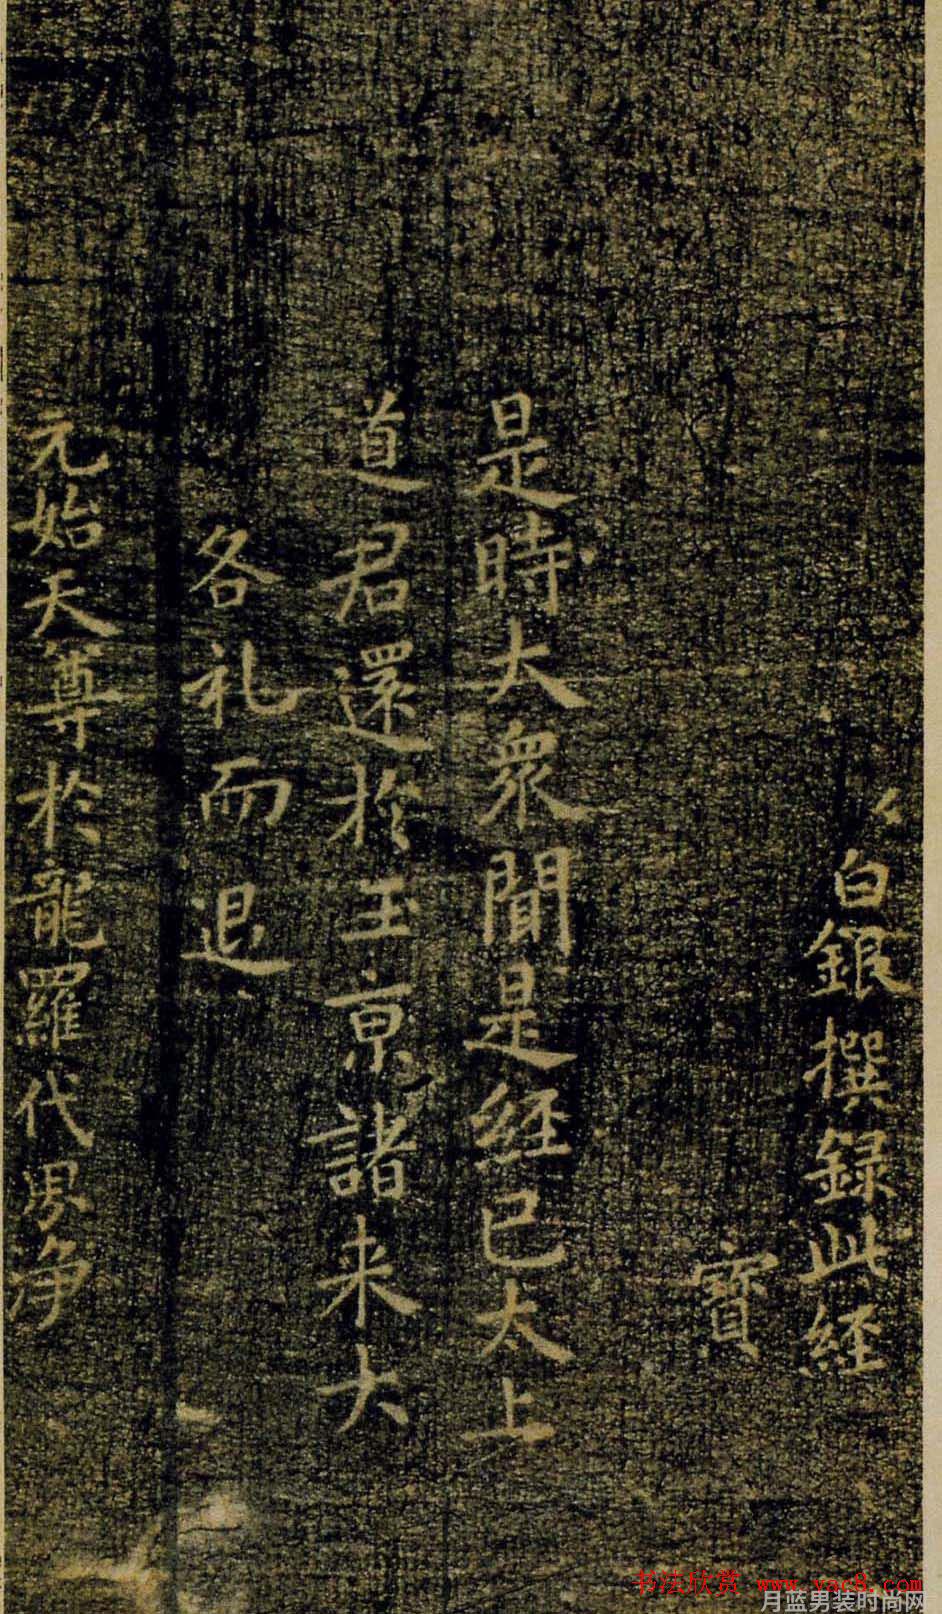 白銀撰録此經
寳
是時大衆聞是經已太上
道君還於玉京諸来大
各礼而退
元始天尊於龍羅代界净
书法欣赏 www.yac8.com
月蓝男装时尚网